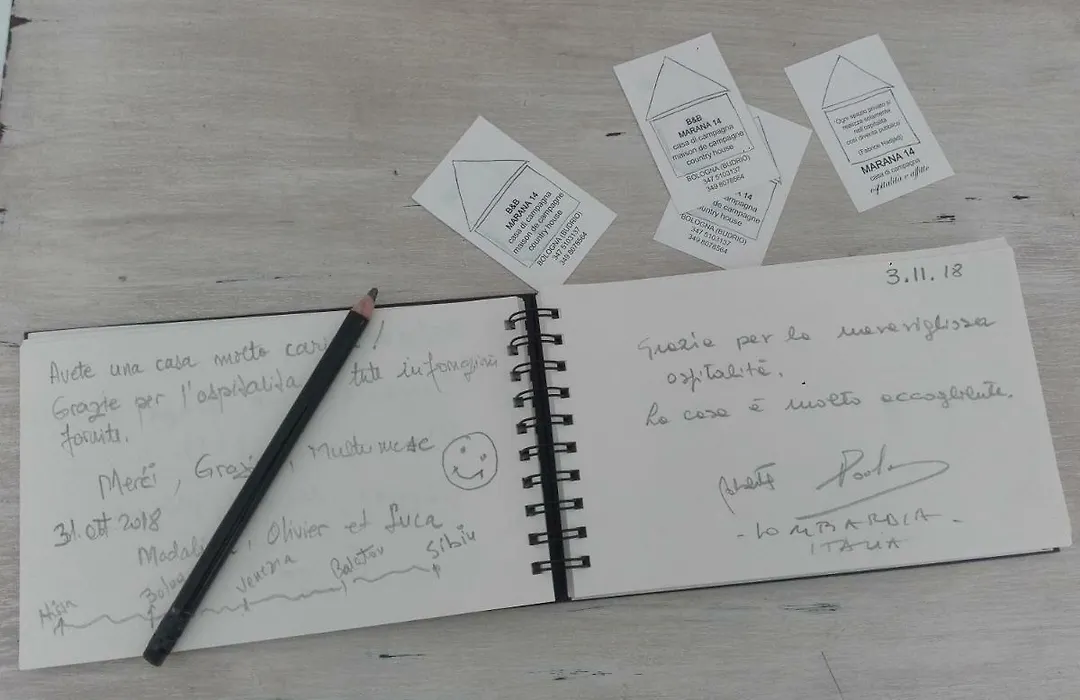 B&B
MARANA 14
casa di campagna
maison de campagne
country house
BOLOGNA (BUDRIO)
347 5103137
349 8078564
B&B
MARANA 14
casa di campagna
maison de campagne
country house
BOLOGNA (BUDRIO)
347 5103137
349 8078564
14
campagna
de campagne
country house
BOLOGNA (BUDRIO)
347 5103137
349 8078564
"Ogni spazio privato si
realizza solamente
nell'ospitalità
così diventa pubblico"
(Fabrice Hadjadj)
MARANA 14
casa di campagna
ospitalità e affitto
Avete una casa molto
Grazie per l'ospitalità
fornite.
Merci, Grazie, Multumesc
31. ott 2018
Olivier et Luca
Venezia Balaton Sibiu
3.11.18
Grazie per la meravigliosa
ospitalità.
La casa è molto accogliente.
Paola
- LOMBARDIA -
ITALIA